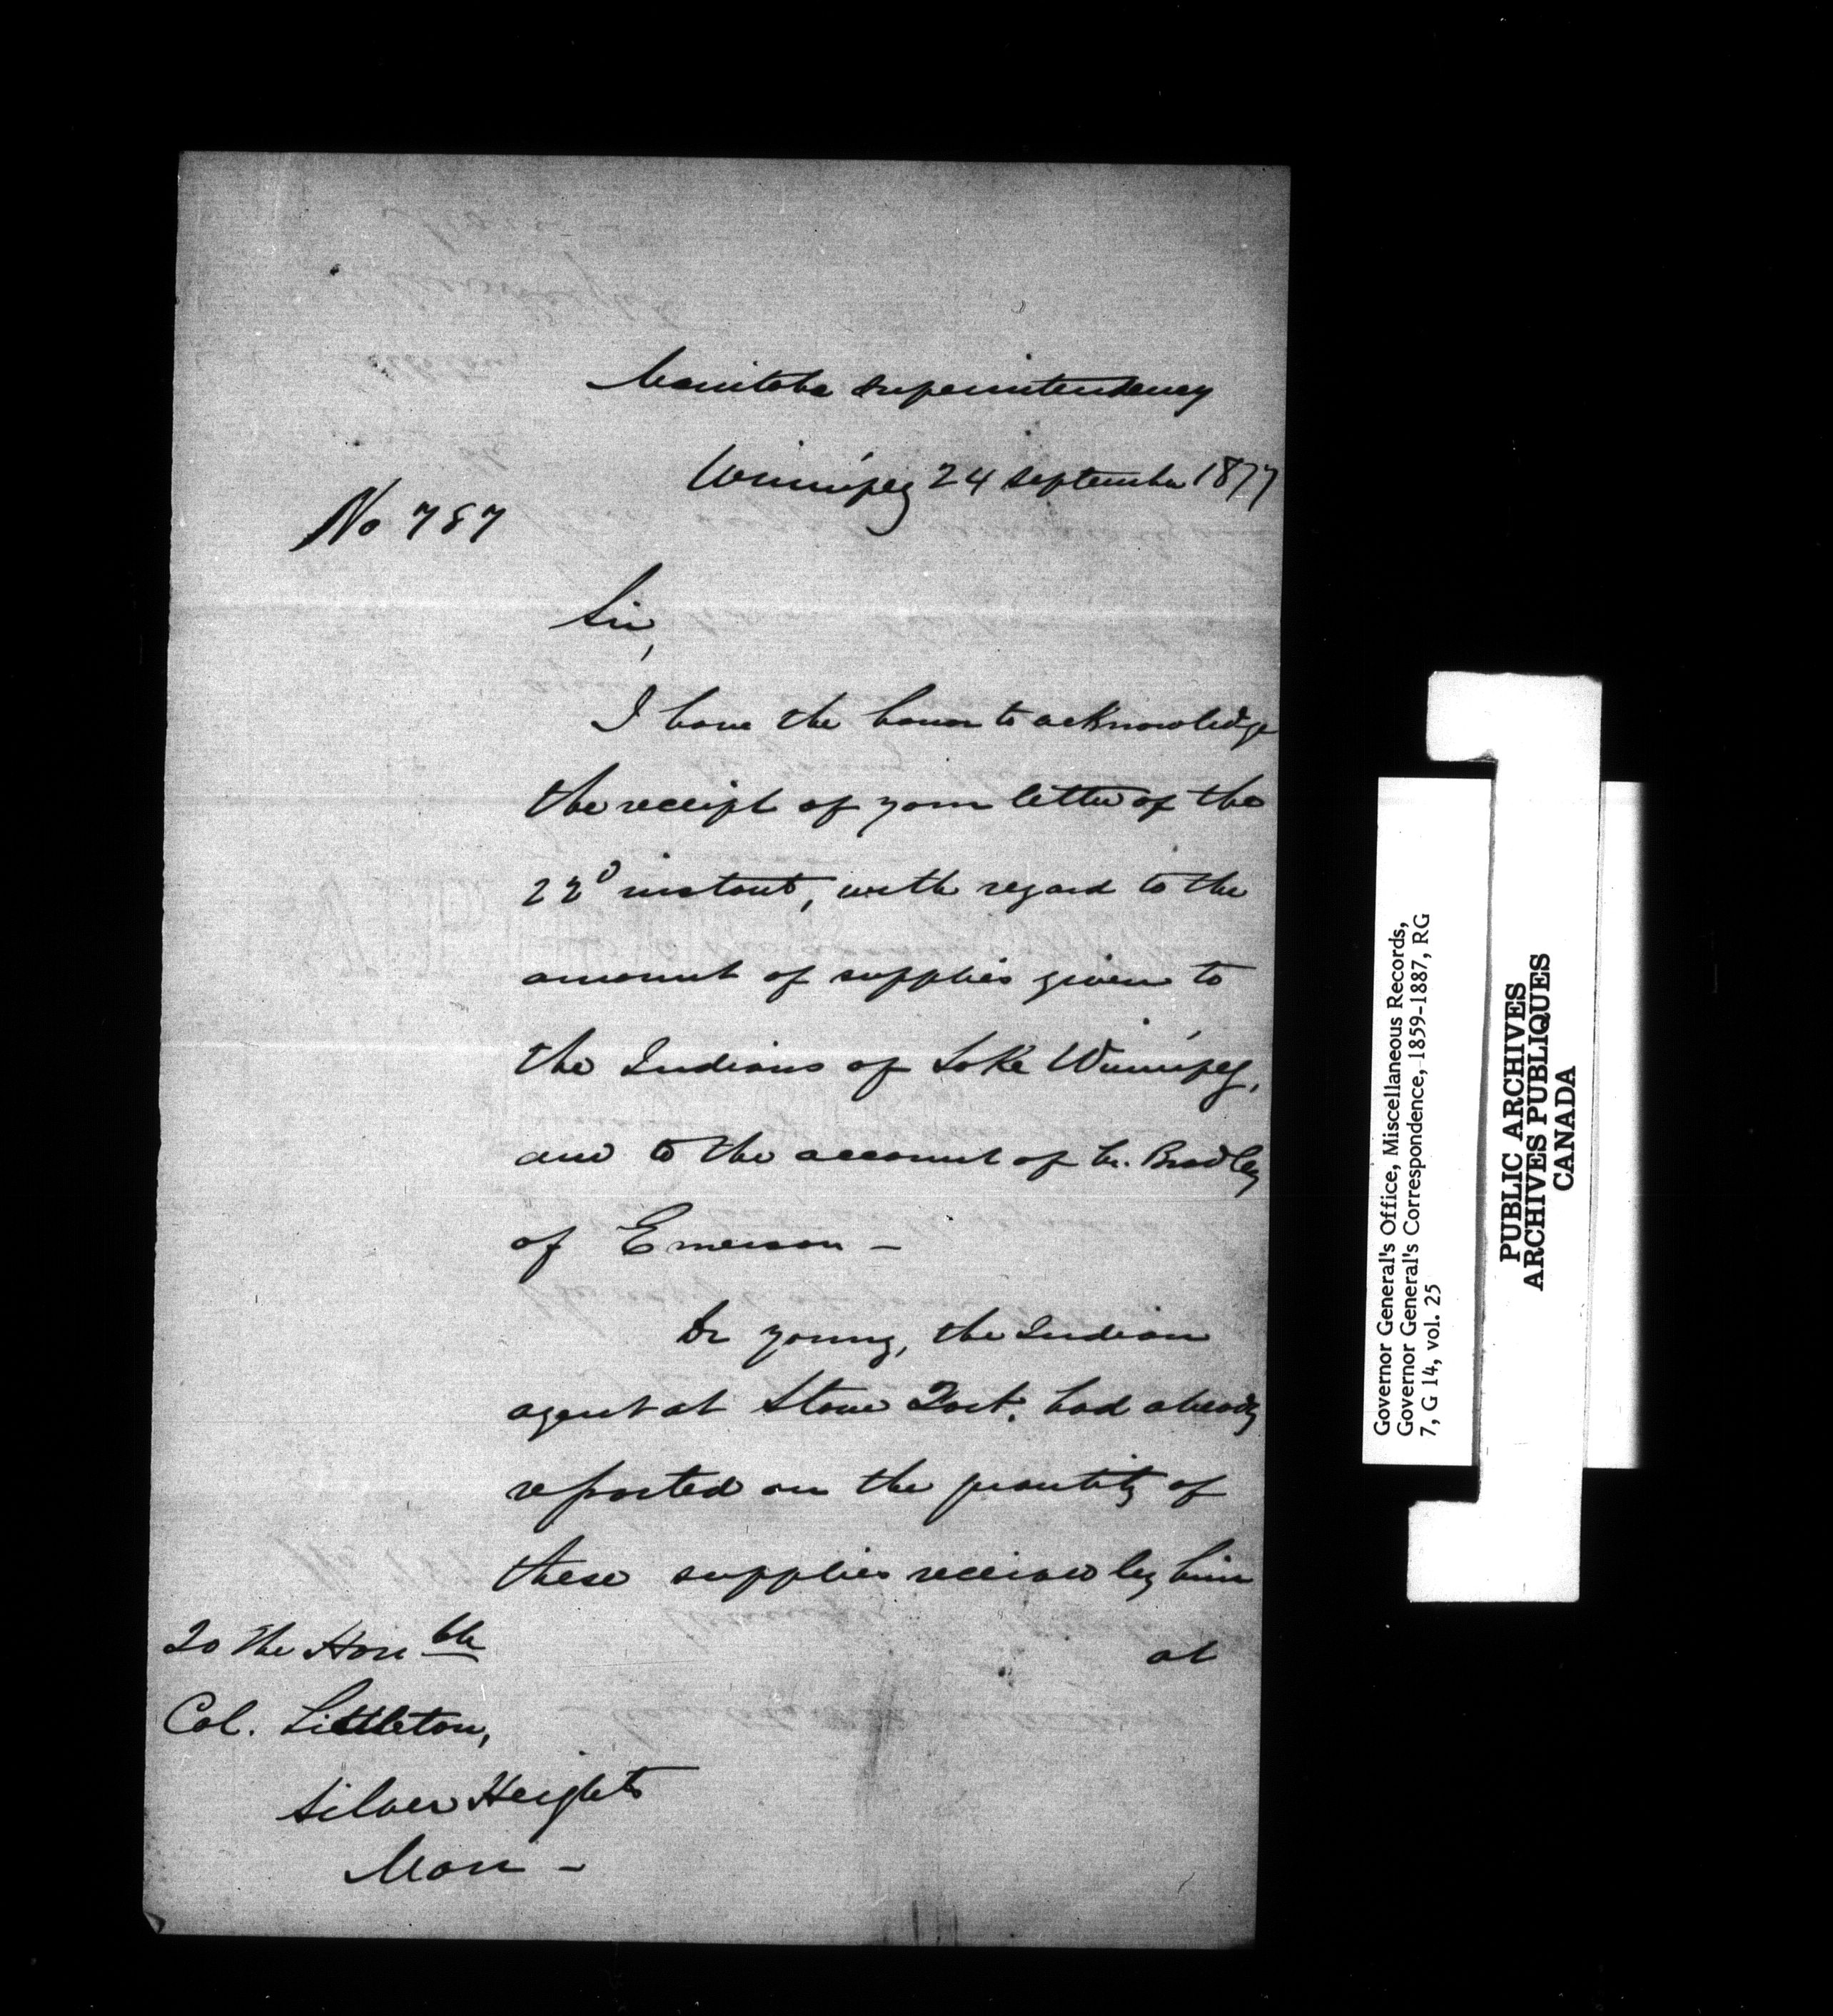 Manitoba Superintendency
Winnipeg 24 September 1877
No 787
Sir,
I have the honor to acknowledge
the receipt of your letter of the
22d instant, with regard to the
amount of supplies given to
the Indians of Lake Winnipeg,
and to the account of Mr. Bradley
of Emerson –
Dr Young, the Indian
agent at Stone Fort, had already
reported on the quantity of
these supplies received by him
at
To the Honble
Col. Littleton,
Silver Heights
Man –
Governor General's Office, Miscellaneous Records,
Governor General's Correspondence, 1859-1887, RG
7, G 14, vol. 25
PUBLIC ARCHIVES
ARCHIVES PUBLIQUES
CANADA